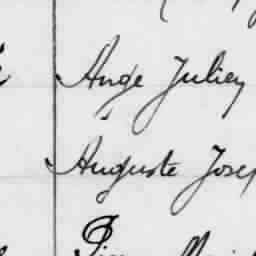 Ange Julien
Auguste Josep